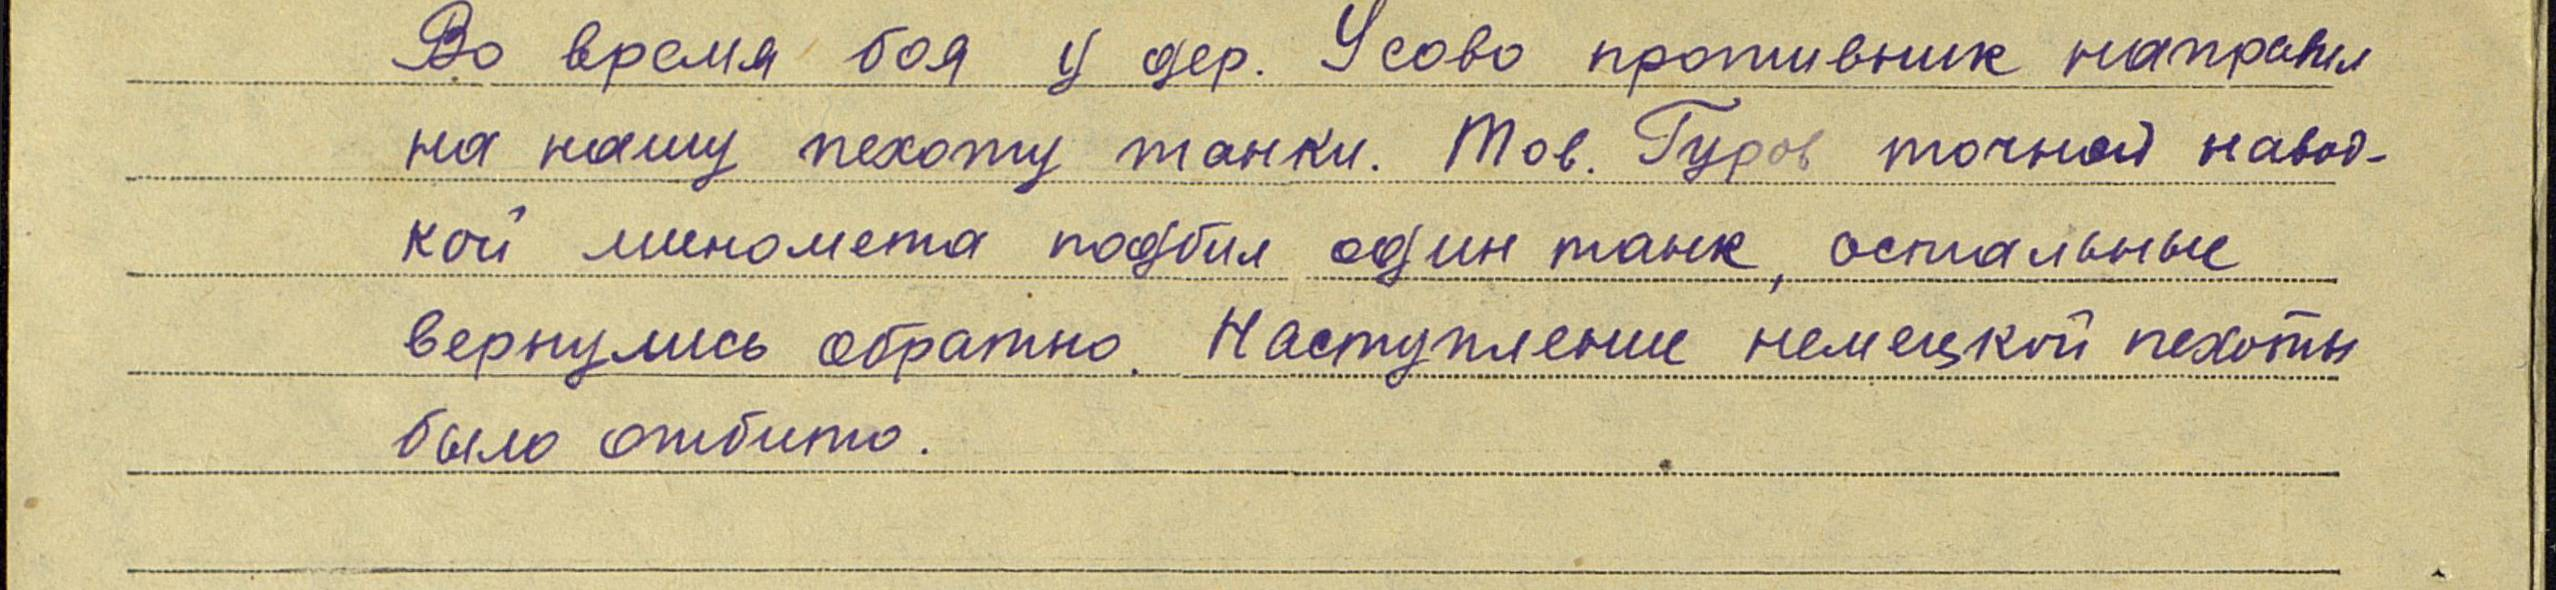 Во время боя у дер. Усово противник направил
на нашу пехоту танки. Тов. Гуров точной навод-
кой миномета подбил один танк, остальные
вернулись обратно. Наступление немецкой пехоты
было отбито.